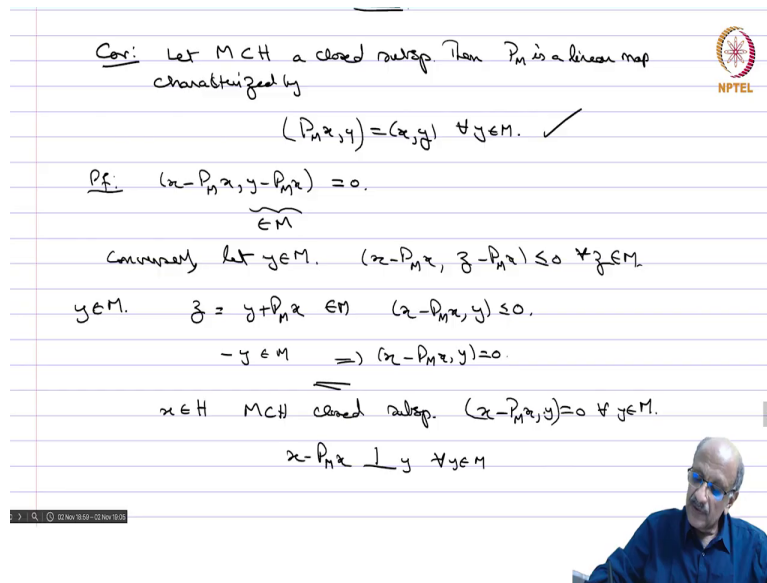 Cor: Let M⊂H a closed subsp. Then P_M is a linear map
characterized by
(P_M x, y) = (x, y) ∀ y∈M. ✓
Pf: (x - P_M x, y - P_M x) = 0.
∈ M
Conversely let y∈M. (x - P_M x, z - P_M x) ≤ 0 ∀ z∈M.
y∈M. z = y + P_M x ∈ M (x - P_M x, y) ≤ 0.
- y ∈ M ⇒ (x - P_M x, y) = 0.
x∈H M⊂H closed subsp. (x - P_M x, y) = 0 ∀ y∈M.
x - P_M x ⊥ y ∀ y∈M
NPTEL
02 Nov 18:59 - 02 Nov 19:05